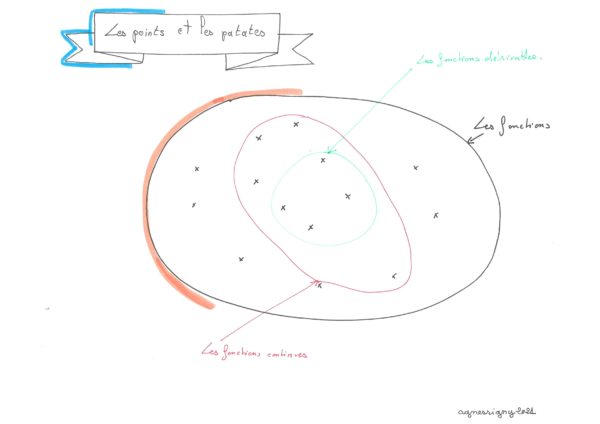 Les points et les patates
Les fonctions dérivables.
Les fonctions
Les fonctions continues
agnesrigny2021